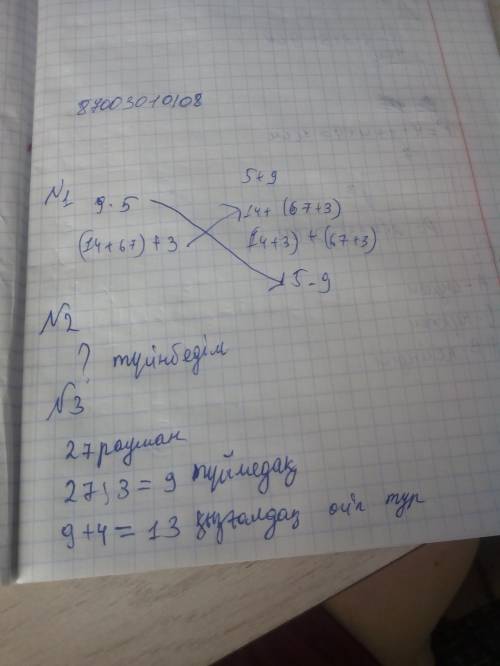 87003010108
5+9
№1 9·5 14+ (67+3)
(14+67)+3 (14+3) + (67+3)
5-9
№2
? түйнбедім
№3
27 раушан
27:3=9 түймедақ
9+4=13 қызғалдақ өсіп тұр